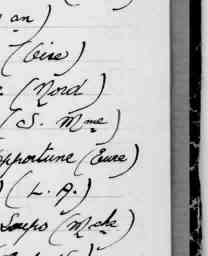 an)
(Oise)
(Nord)
(S. Mme)
opportune (Eure)
(L. A.)
Saups (Mche)